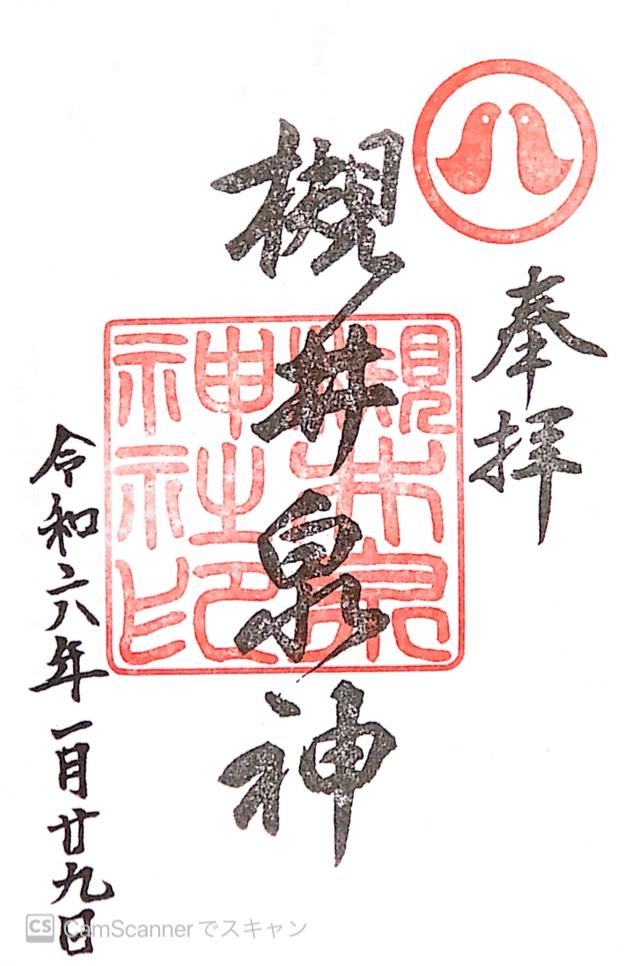 奉拝
槻井泉神
槻井泉
神社印
令和六年一月廿九日
CS CamScannerでスキャン